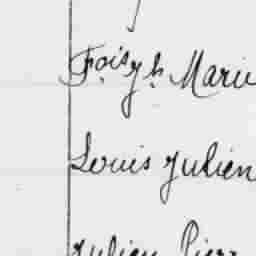 Marie
Louis Julien
Julien Pierr